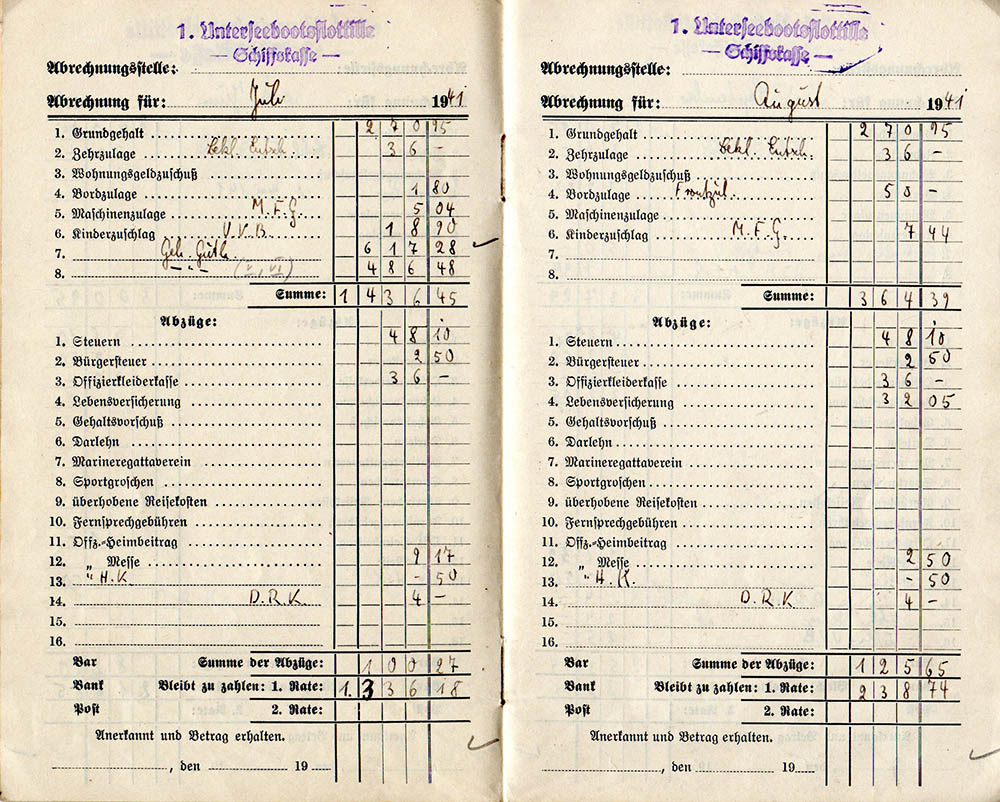 1. Unterseebootsflottille
— Schiffskasse —
Abrechnungsstelle:
Abrechnung für: Juli 1941
1. Grundgehalt 270 95
2. Zehrzulage Bekl. Entsch. 36 –
3. Wohnungsgeldzuschuß
4. Bordzulage 1 80
5. Maschinenzulage M.F.G. 5 04
6. Kinderzuschlag V.V.B. 18 90
7. Geh. Guth. 617 28
8. –„– (V, VI) 486 48
Summe: 1436 45
Abzüge:
1. Steuern 48 10
2. Bürgersteuer 2 50
3. Offizierkleiderkasse 36 –
4. Lebensversicherung
5. Gehaltsvorschuß
6. Darlehn
7. Marineregattaverein
8. Sportgroschen
9. überhobene Reisekosten
10. Fernsprechgebühren
11. Offz.-Heimbeitrag
12. „ Messe 9 17
13. " H.K. – 50
14. D.R.K. 4 –
15.
16.
Bar Summe der Abzüge: 100 27
Bank Bleibt zu zahlen: 1. Rate: 1.336 18
Post 2. Rate:
Anerkannt und Betrag erhalten.
, den 19
1. Unterseebootsflottille
— Schiffskasse —
Abrechnungsstelle:
Abrechnung für: August 1941
1. Grundgehalt 270 95
2. Zehrzulage Bekl. Entsch. 36 –
3. Wohnungsgeldzuschuß
4. Bordzulage Frontzul. 50 –
5. Maschinenzulage
6. Kinderzuschlag M.F.G. 7 44
7.
8.
Summe: 364 39
Abzüge:
1. Steuern 48 10
2. Bürgersteuer 2 50
3. Offizierkleiderkasse 36 –
4. Lebensversicherung 32 05
5. Gehaltsvorschuß
6. Darlehn
7. Marineregattaverein
8. Sportgroschen
9. überhobene Reisekosten
10. Fernsprechgebühren
11. Offz.-Heimbeitrag
12. „ Messe 2 50
13. " H.K. – 50
14. D.R.K 4 –
15.
16.
Bar Summe der Abzüge: 125 65
Bank Bleibt zu zahlen: 1. Rate: 238 74
Post 2. Rate:
Anerkannt und Betrag erhalten.
, den 19